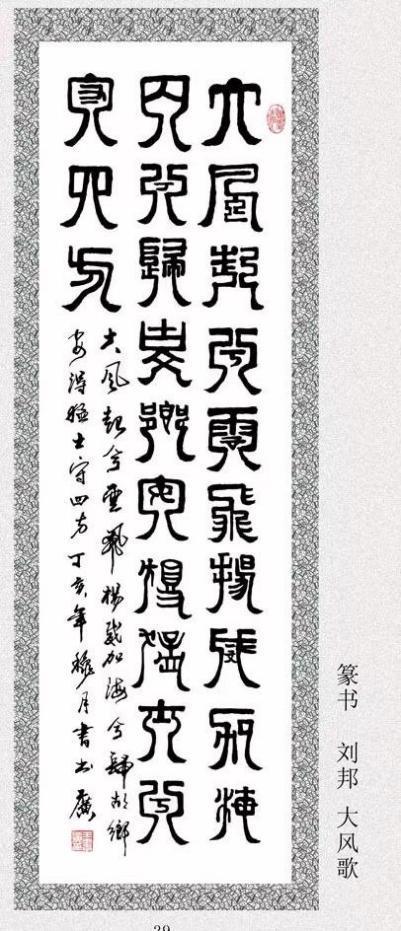 大風起兮雲飛揚威加海
内兮歸故鄉安得猛士兮
守四方
大風起兮雲飛揚威加海兮歸故鄉
安得猛士守四方丁亥年月書
篆书 刘邦 大风歌